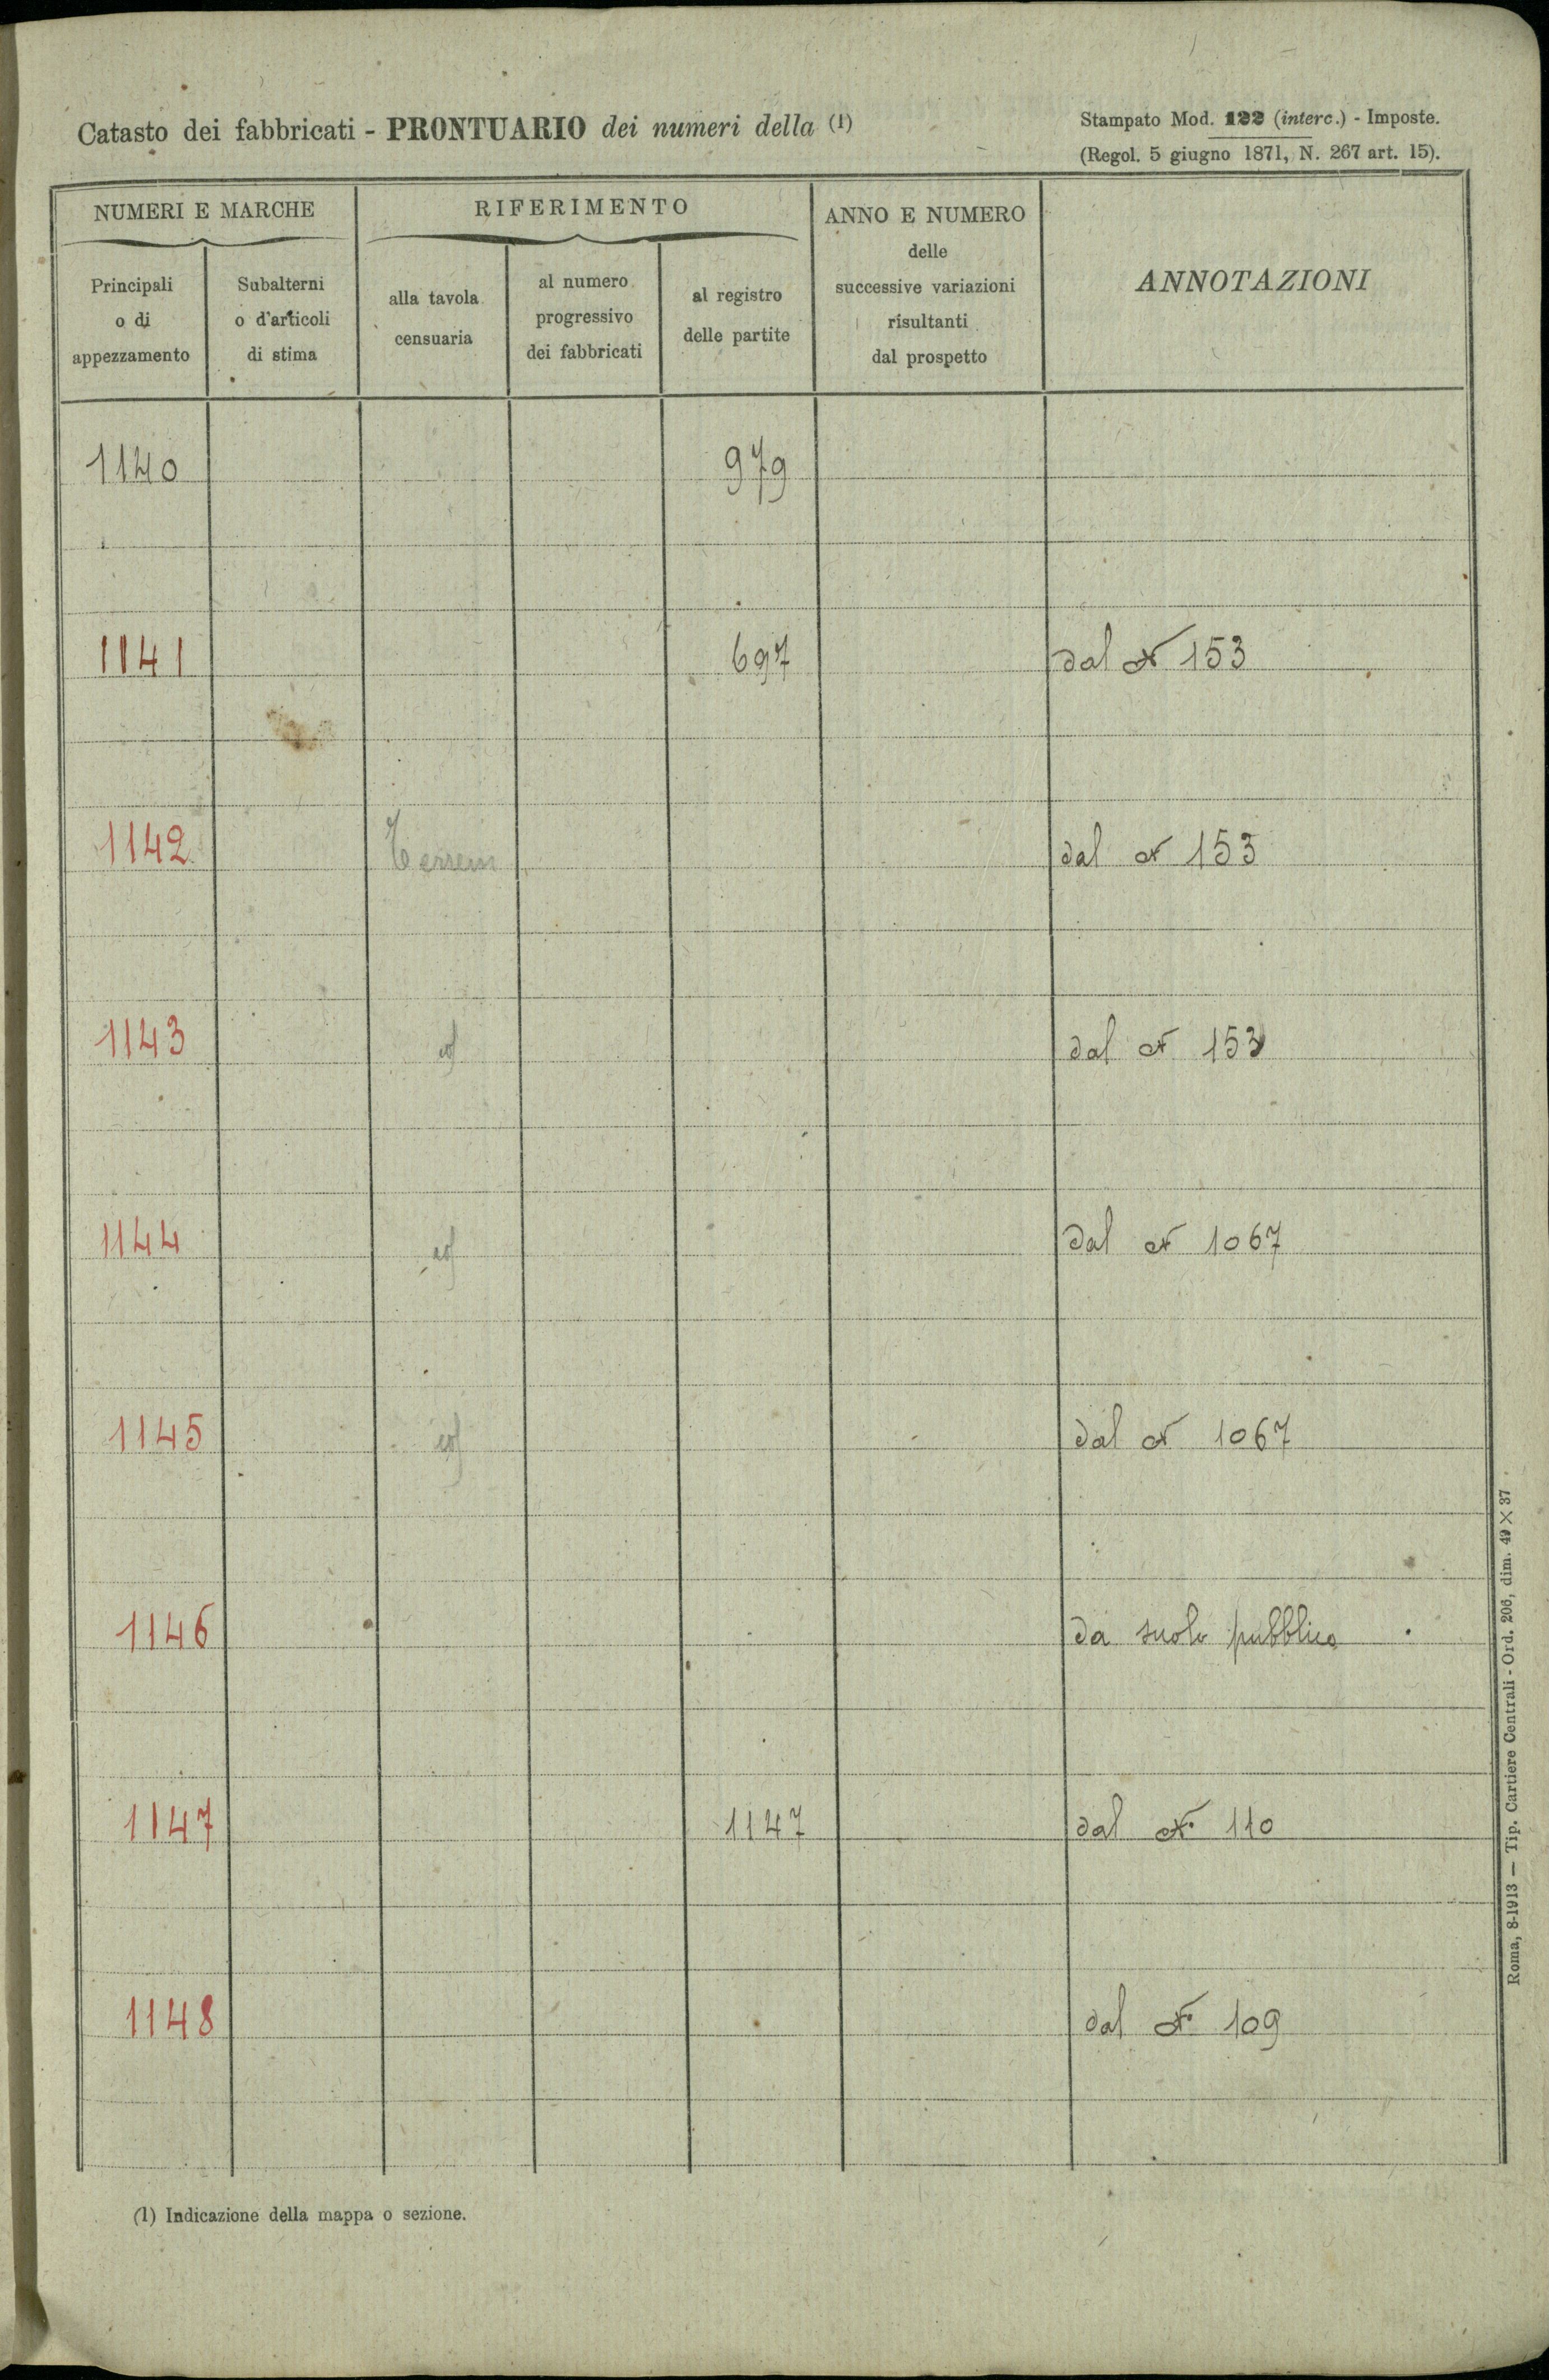 Catasto dei fabbricati - PRONTUARIO dei numeri della (1)
Stampato Mod. 122 (interc.) - Imposte.
(Regol. 5 giugno 1871, N. 267 art. 15).
NUMERI E MARCHE
RIFERIMENTO
ANNO E NUMERO
delle
successive variazioni
risultanti
dal prospetto
ANNOTAZIONI
Principali
o di
appezzamento
Subalterni
o d'articoli
di stima
alla tavola
censuaria
al numero
progressivo
dei fabbricati
al registro
delle partite
1140 979
1141 697 dal N 153
1142 dal N 153
1143 dal N 153
1144 dal N 1067
1145 dal N 1067
1146 da suolo pubblico
1147 1147 dal N. 110
1148 dal N. 109
(1) Indicazione della mappa o sezione.
Roma, 8-1913 — Tip. Cartiere Centrali - Ord. 206, dim. 49 × 37